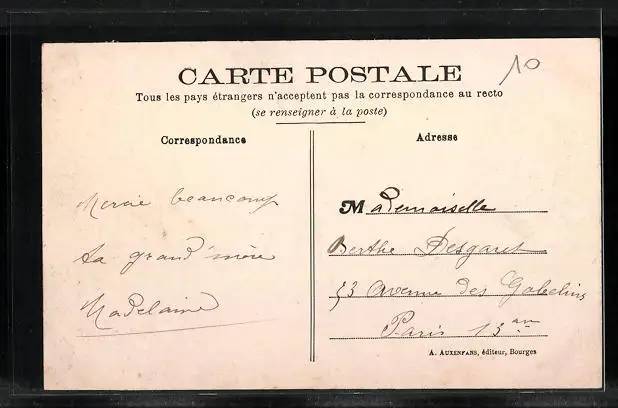 10
CARTE POSTALE
Tous les pays étrangers n'acceptent pas la correspondance au recto
(se renseigner à la poste)
Correspondance
Mercie beaucoup
ta grand'mère
Madelaine
Adresse
Mademoiselle
Berthe Desgaret
53 Avenue des Gobelins
Paris 13 em
A. AUXENFANS, éditeur, Bourges